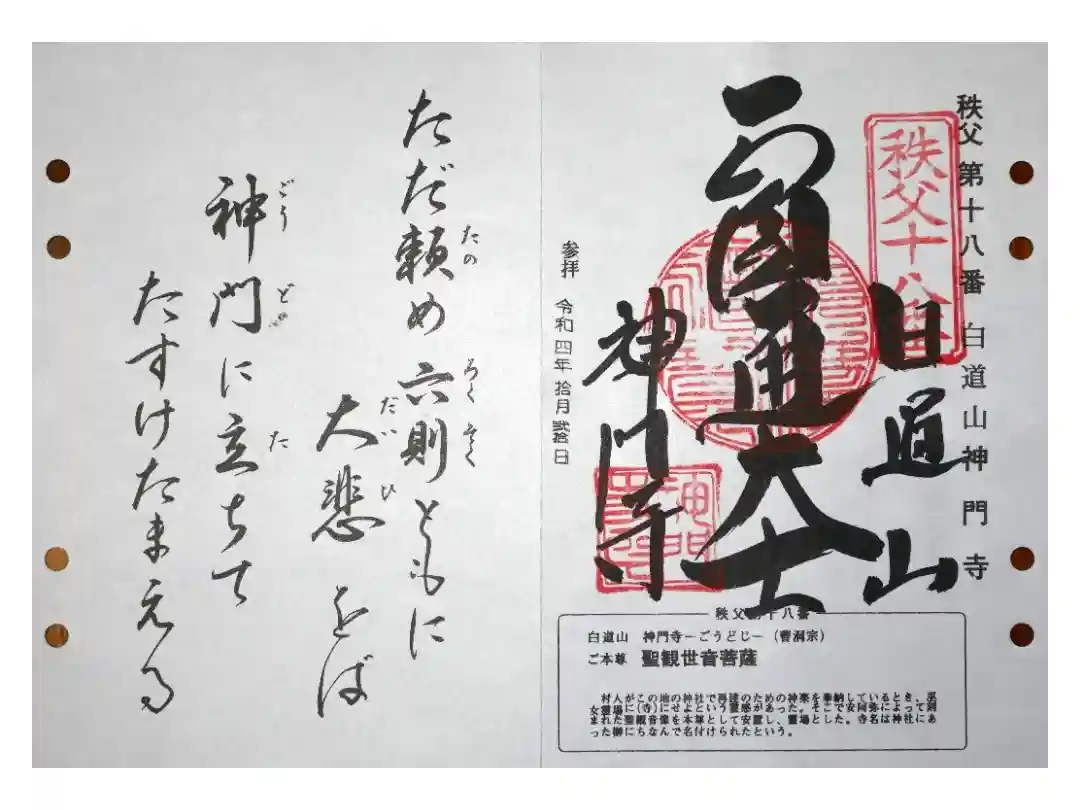 秩父第十八番 白道山神門寺
秩父十八番
白道山
圓通大士
神門寺
参拝 令和四年拾月弐拾日
秩父第十八番
白道山 神門寺－ごうどじ－（曹洞宗）
ご本尊 聖観世音菩薩
村人がこの地の神社で再建のための神楽を奉納しているとき、巫
女霊場に(寺)にせよという霊感があった。そこで安阿弥によって刻
まれた聖観音像を本尊として安置し、霊場とした。寺名は神社にあ
った榊にちなんで名付けられたという。
ただ頼め六則ともに
たの ろくそく
大悲をば
だいひ
神門に立ちて
ごうど た
たすけたまえる